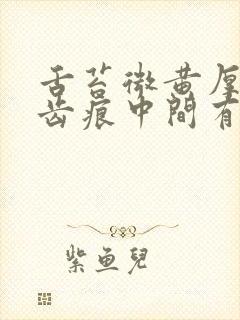 舌苔微黄厚
齿痕中間有
紫魚兒